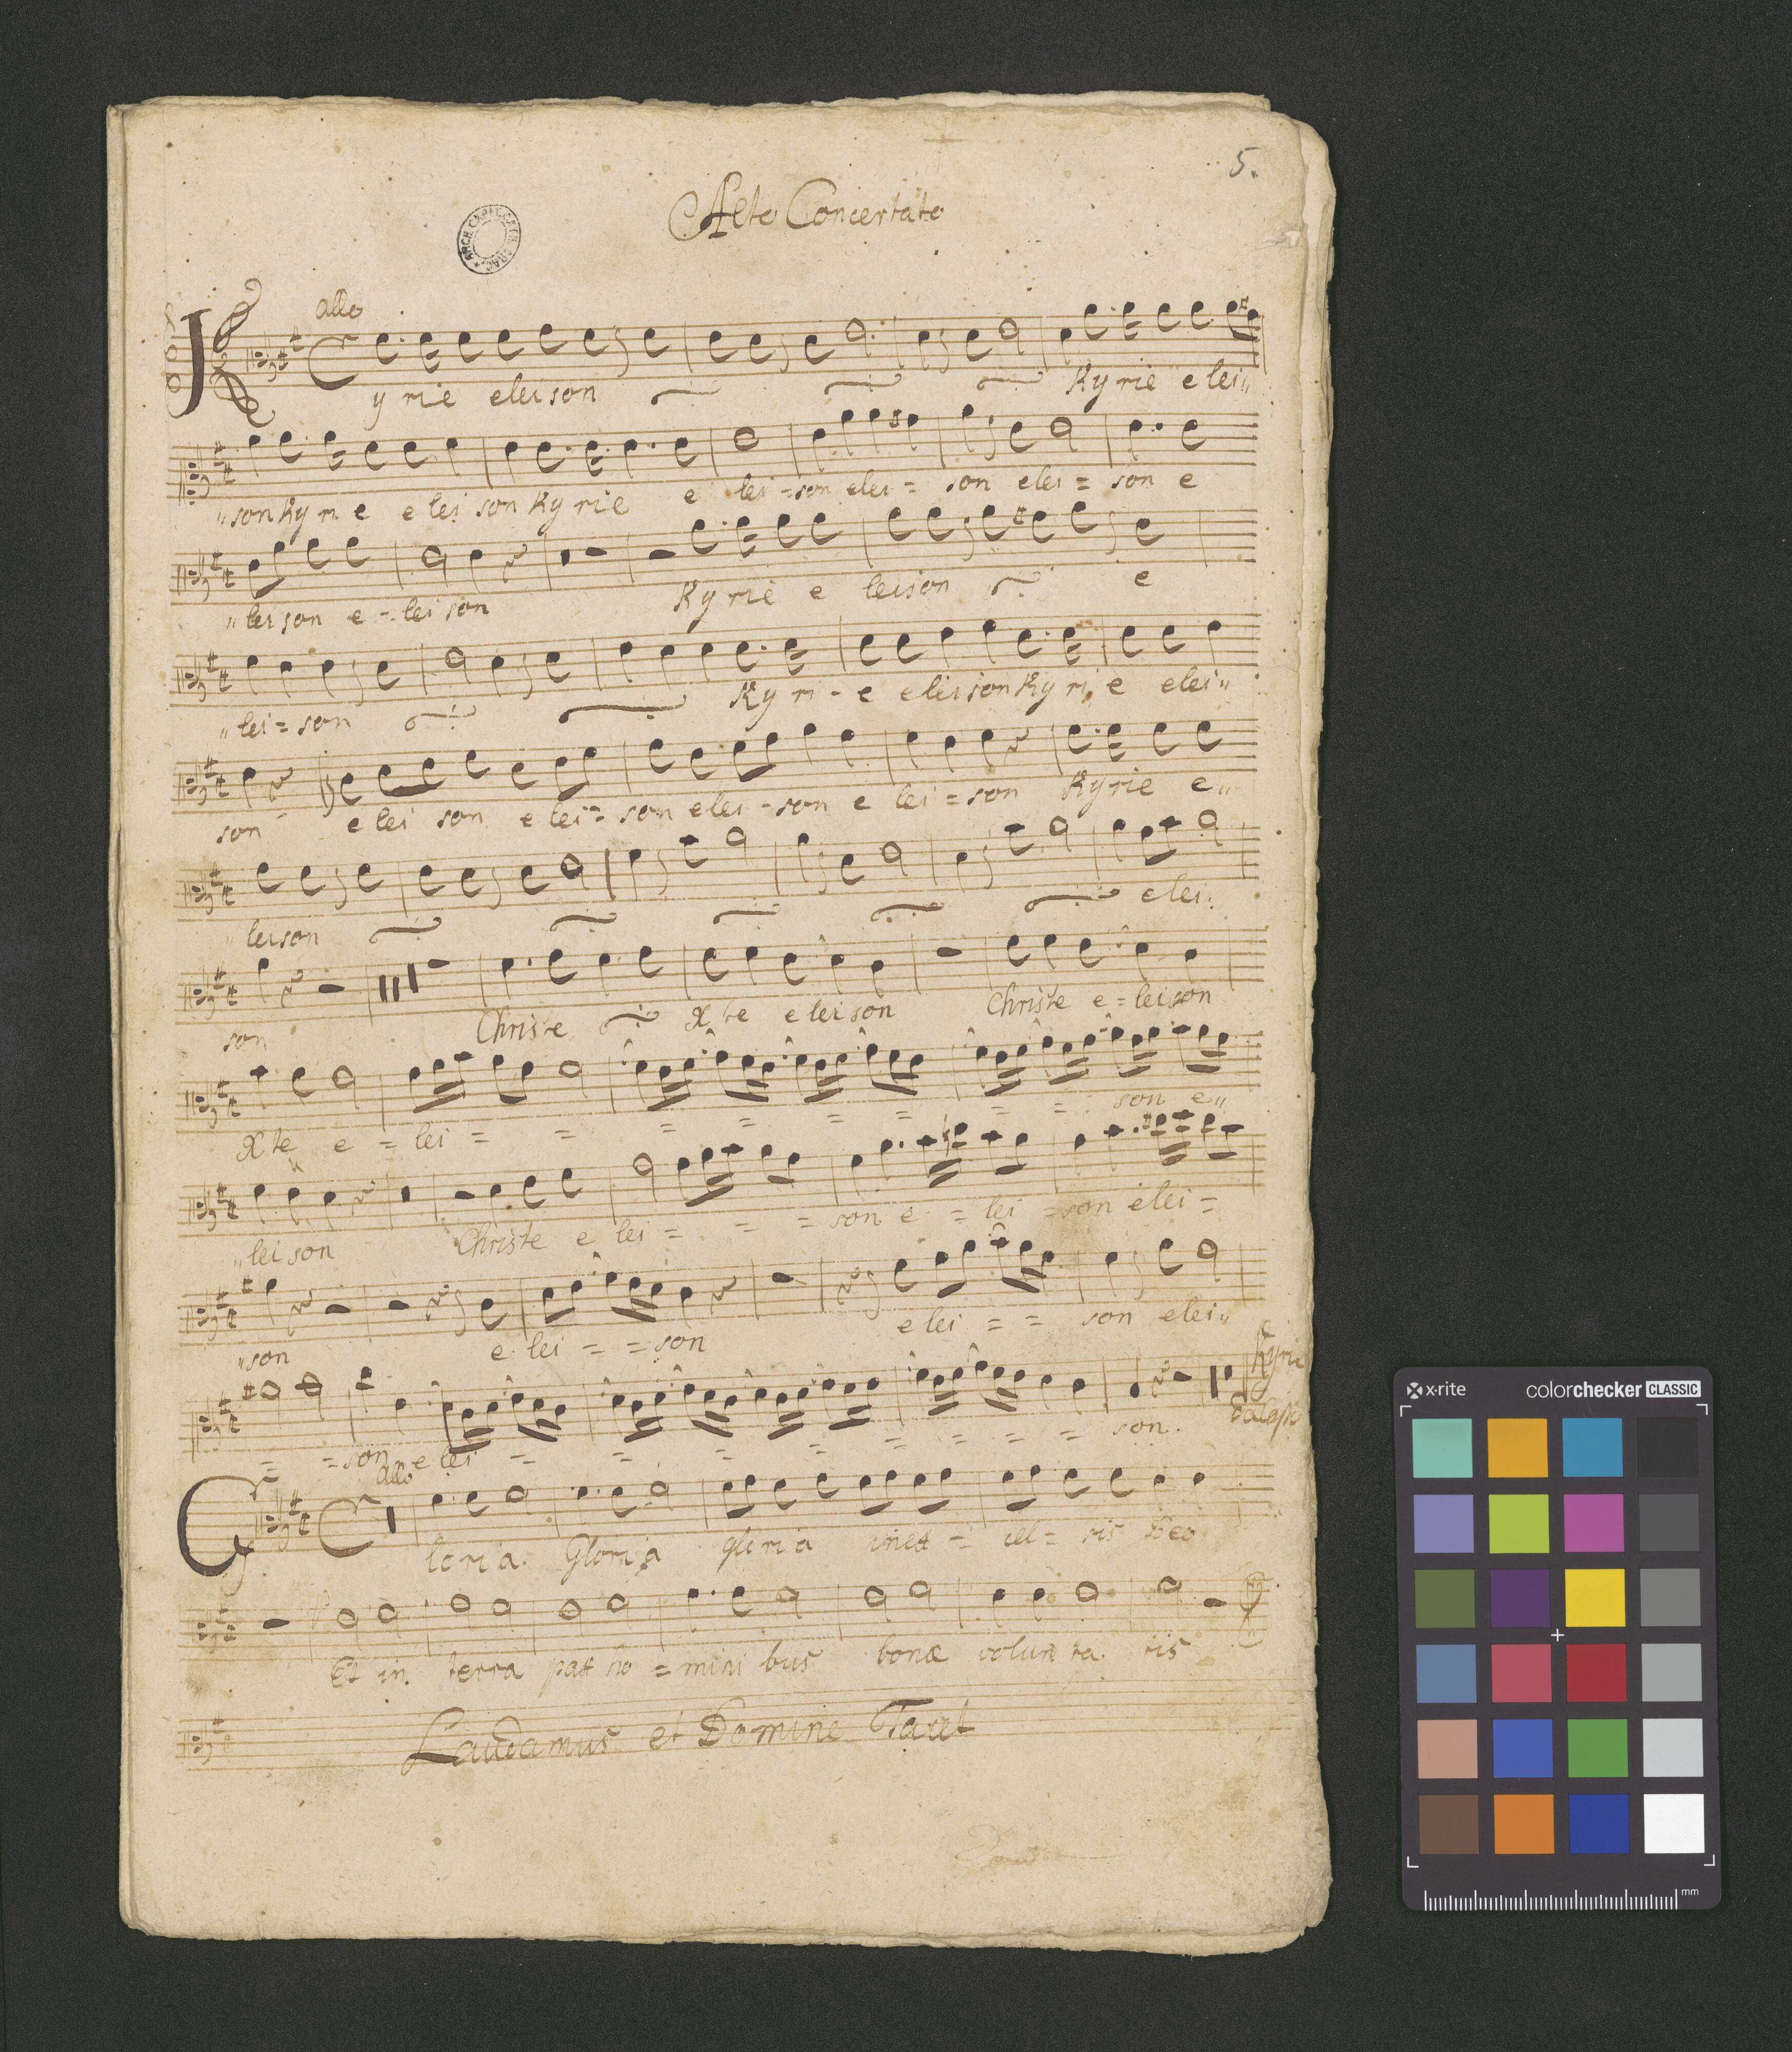 5.
Alto Concertato
ARCH. CAPIT. CATH. CRAC.
allo
Kyrie eleison Kyrie elei〃
〃son Ky ri e e lei son Ky rie e lei = son elei = son elei = son e
〃leison e - lei son Kyrie e leison e
〃lei = son Ky ri - e eleison Ky ri e elei〃
son e lei son e lei = son elei - son e lei = son Kyrie e〃
〃leison elei
son Christe Xte eleison Christe e = leison
Xte e = lei = = = = = = = = son e〃
〃lei son Christe e lei = = = son e = lei = son elei =
〃son e lei = = son e lei = = son elei〃
= = son e lei = = = = = = = = son. Kyrie
allo
Gloria. Gloria gloria inex = cel = sis Deo
Et in terra pax ho = mini bus bonæ volun ta tis
Laudamus et Domine Tacet
x·rite colorchecker CLASSIC
mm